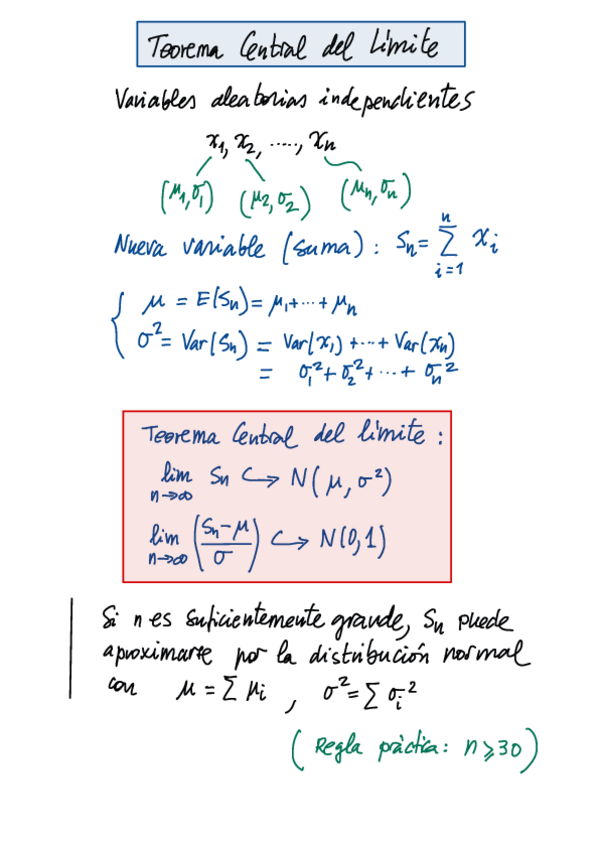 Teorema Central del Límite
Variables aleatorias independientes
x₁, x₂, ....., xₙ
(μ₁,σ₁) (μ₂,σ₂) (μₙ,σₙ)
Nueva variable (suma): Sₙ = ∑ᵢ₌₁ⁿ xᵢ
μ = E(Sₙ) = μ₁+...+μₙ
σ² = Var(Sₙ) = Var(x₁)+...+Var(xₙ)
= σ₁²+σ₂²+...+σₙ²
Teorema Central del límite:
lim n→∞ Sₙ ↪ N(μ,σ²)
lim n→∞ ((Sₙ-μ)/σ) ↪ N(0,1)
Si n es suficientemente grande, Sₙ puede
aproximarse por la distribución normal
con μ = ∑ μᵢ , σ² = ∑ σᵢ²
(Regla pràctica: n ≥ 30)